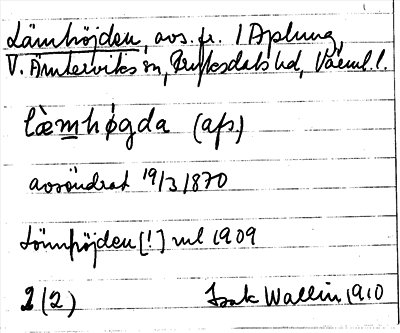 Lämhöjden, avs. fr. 1 Aplung,
V. Ämterviks sn, Fryksdals hd, Värml. l.
læ̀mhøgda (afs.)
avsöndrat 19/3 1870
Lömhöjden [!] ml 1909
2 (2) Isak Wallin 1910